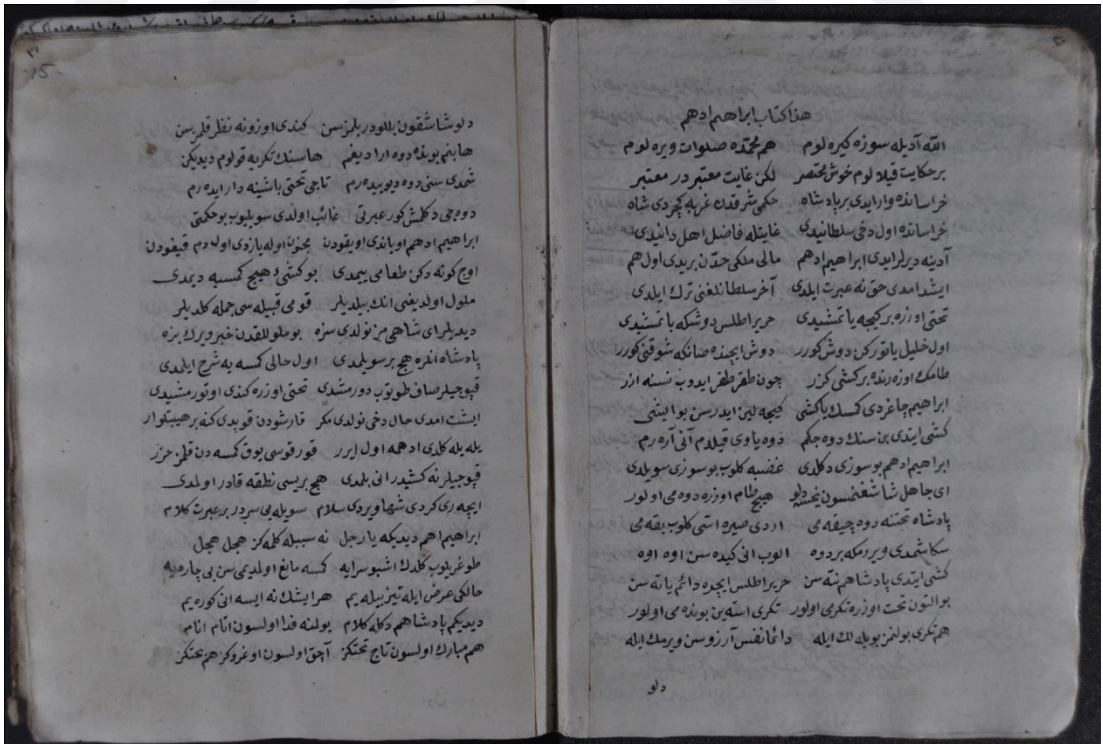 هذا كتاب ابراهيم ادهم
الله آديله سوزه كيره لوم هم محمّده صلوات ويره لوم
بر حكايت قيلا لوم خوش مختصر لكن غايت معتبر در معتبر
خراسانده وارايدى بر پادشاه حكمى شرقدن غربه كچردى شاه
خراسانده اول دخى سلطانيدى غايتله فاضل اهل دانيدى
آدينه ديرلرايدى ابراهيم ادهم مالى ملكى حدّن بريدى اول هم
ايشدامدى حق نه عبرت ايلدى آخر سلطانلغنى ترك ايلدى
تختى اوزره بر كيجه ياتمشيدى حرير اطلس دوشكه باتمشيدى
اول خليل ياتوركن دوش كورر دوش ايچنده صانكه شوقنى كورر
طامك اوزه رنده بر كشى كزر چون طقر طقر ايدوب نسنه ازر
ابراهيم چاغردى كمسك ياكشى كيجه لين ايدرسن بو ايشى
كشى ايتدى بن سنك دوه جكم دوه ياوى قيلدم آنى آره رم
ابراهيم ادهم بو سوزى دكلدى غضبه كلوب بو سوزى سويلدى
اى جاهل شاشغنمسون يخسه دلو هيچ طام اوزره دوه مى اولور
پادشاه تختنه دوه چيقه مى اردى صيره اتى كلوب بقه مى
سكا شمدى ويررمكه بر دوه الوب انى كيده سن اوه اوه
كشى ايتدى پادشاهم نته سن حرير اطلس ايچره دائم ياته سن
بو التون تخت اوزره تكرى مى اولور تكرى استه ين بونده مى اولور
هم تكرى بولنمز بويله لك ايله دائما نفس آرزوسن ويرمك ايله
دلو
دلو شاشقون بللودر بلمزسن كندى اوزونه نظر قلمزسن
ها بنم بونده دوه ارا ديغم ها سنك تكريه قولوم ديديكن
شمدى سنى دوه ديو بيده رم تاجى تختى باشينه دار ايده رم
دوه جى دكلمش كور عبرتى غائب اولدى سويليوب بو حكمتى
ابراهيم ادهم اوياندى اويقودن مجنون اوله يازدى اول دم قيغودن
اوچ كونه دكن طعامى ييمدى بو كشئ هيچ كمسيه ديمدى
ملول اولديغنى انك بيلديلر قومى قبيله سى جمله كلديلر
ديديلر اى شاهى مز نولدى سزه بو ملوللقدن خبر ويرك بزه
پادشاه انلره هيچ بر سويلمدى اول حالى كمسه يه شرح ايلمدى
قپوجيلر صاف طوتوب دورمشدى تختى اوزره كندى اوتورمشيدى
ايشت امدى حال دخى نولدى مكر قارشودن قوپدى كنه بر هيبتلو ار
يله يله كلدى ادهمه اول ايرر قورقوسى يوق كمسه دن قلمز حزر
قپوجيلر نه كشيدر انى بلمدى هيچ بريسى نطقه قادر اولدى
ايچه رى كردى شها ويردى سلام سويله يى سردر بر عبرت كلام
ابراهيم اهم ديديكه يا رجل نه سببله كلمه كز هجل هجل
طوغريلوب كلدك اشبو سرايه كمسه مانع اولديمى سن بى چاره يه
حالكى عرض ايله تيز بيله يم هر ايشك نه ايسه انى كوره يم
ديديكم پادشاهم دكله كلام يولنه فدا اولسون انام انام
هم مبارك اولسون تاج تختكز آچق اولسون اوغروكز هم بختكز